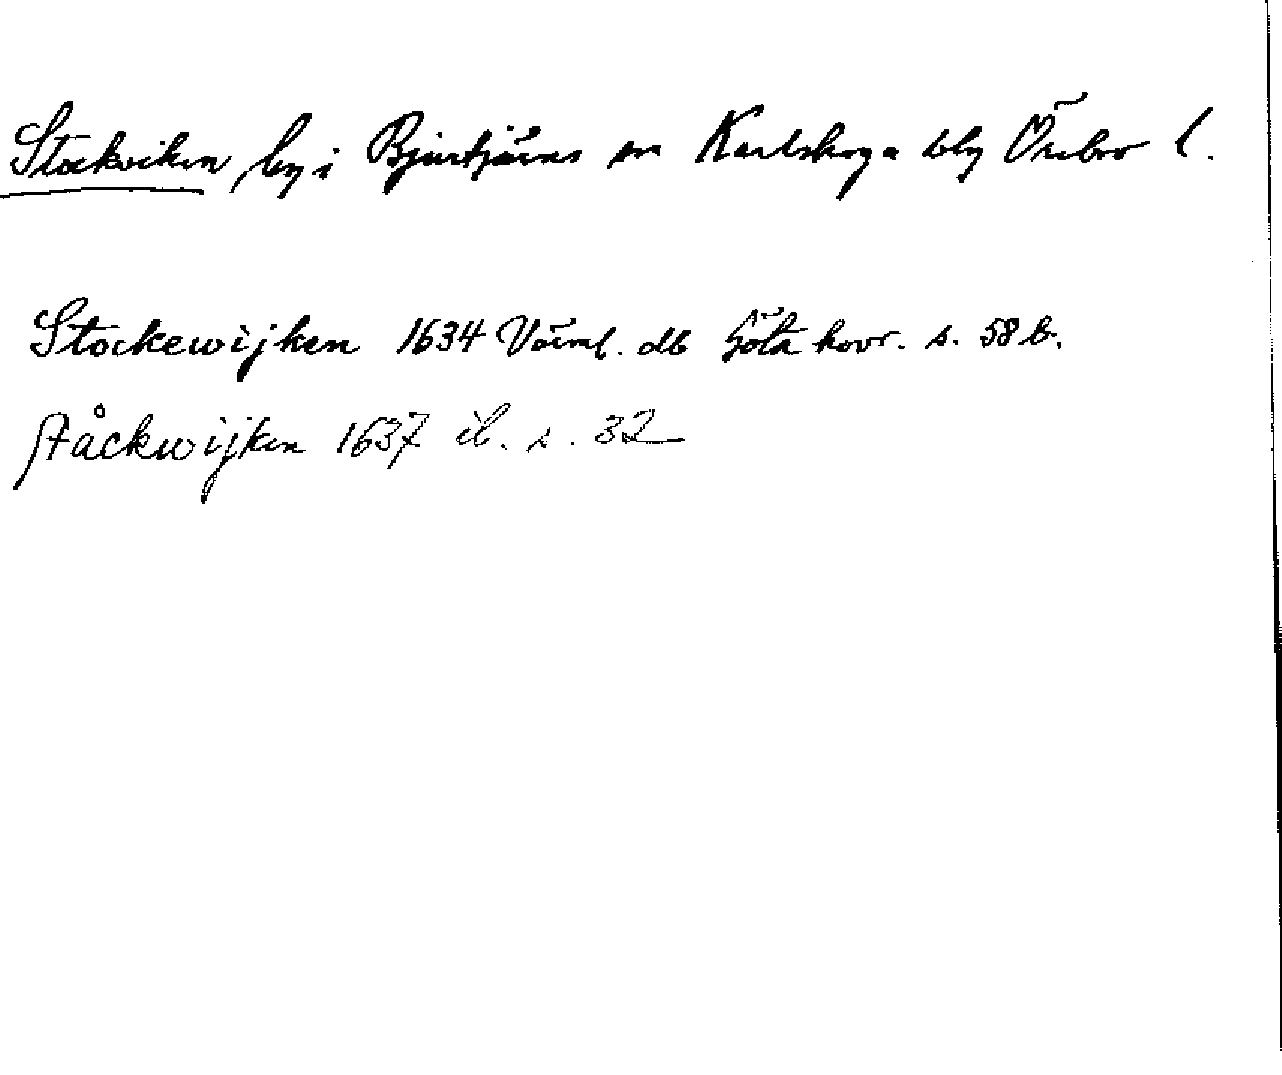 Stockviken by i Bjurtjärns sn Karlskoga blg Örebro l.
Stockewijken 1634 Värml. db Göta hovr. s. 58 b.
Ståckwijken 1637 ib. s. 32